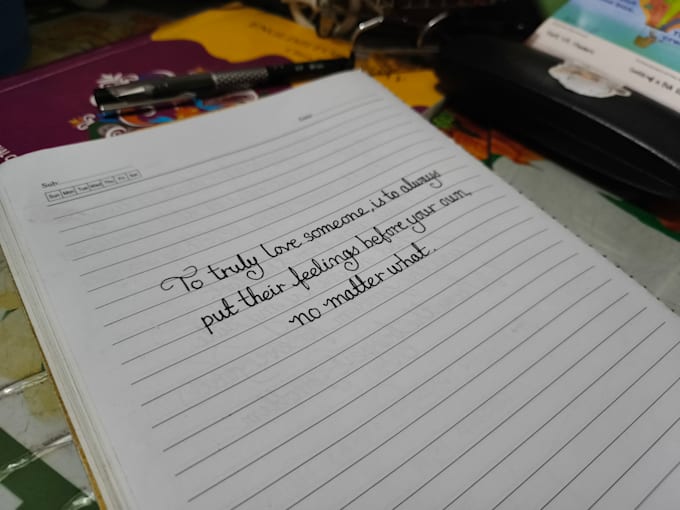 Sub:
Date
Sun Mon Tue Wed Thu Fri Sat
To truly love someone, is to always
put their feelings before your own,
no matter what.